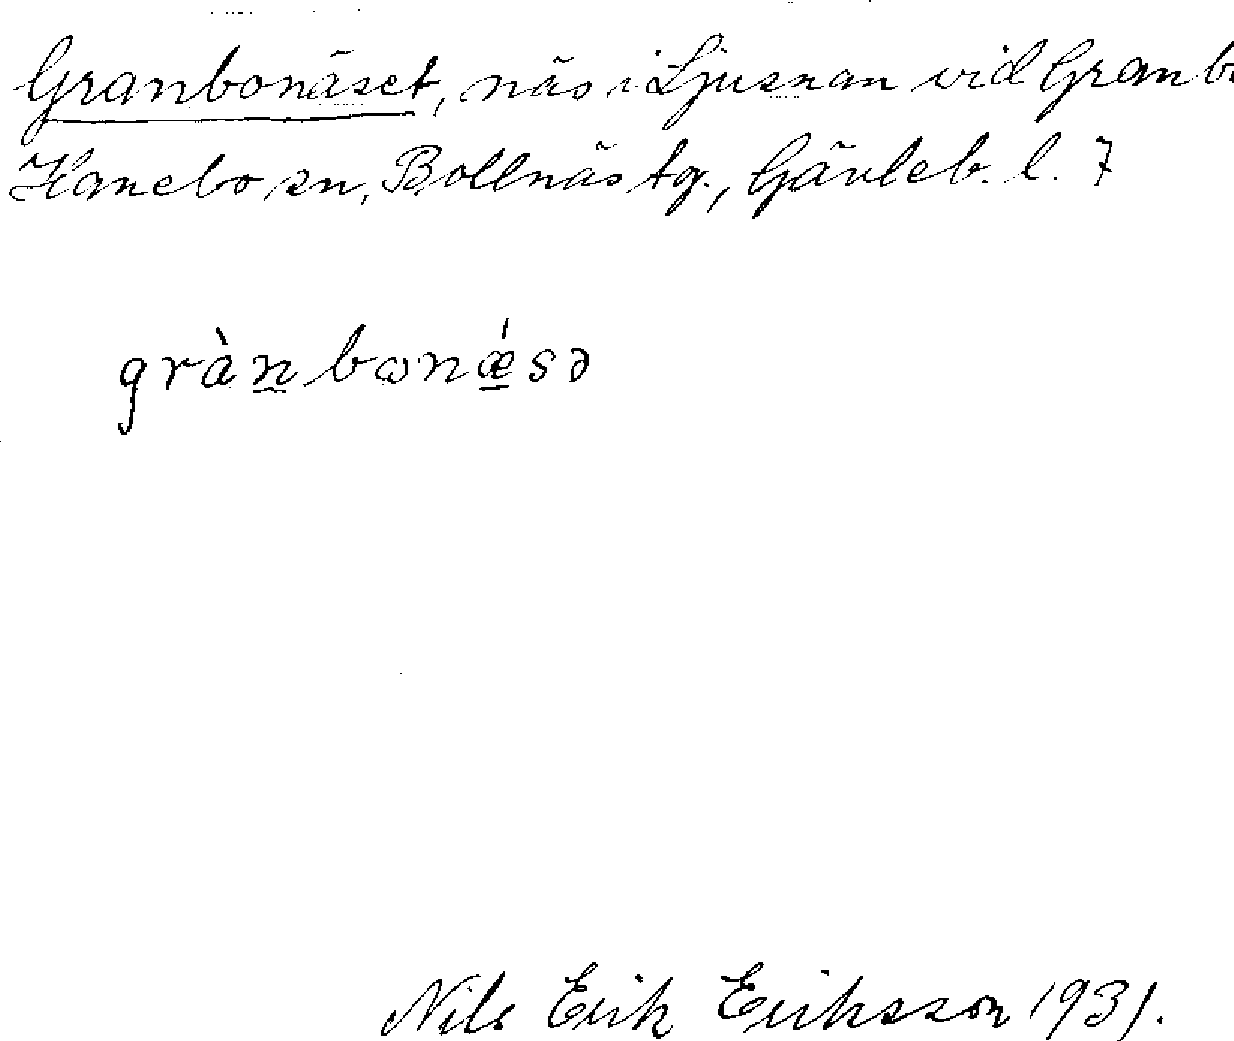 Granbonäset, näs i Ljusnan vid Granbo
Hanebo sn, Bollnäs tg., Gävleb. l. 7
grànbωnǽsə
Nils Erik Eriksson 1931.